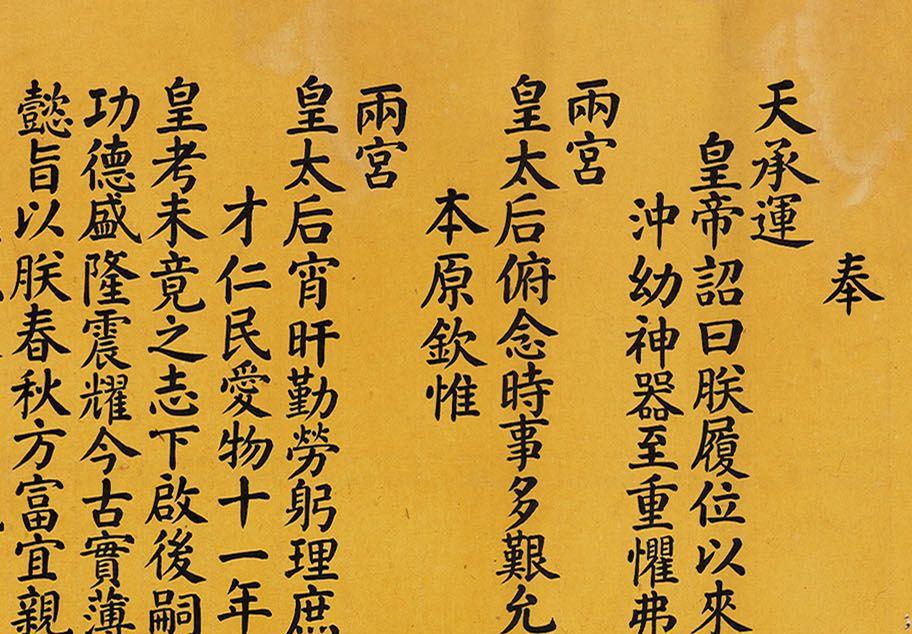 奉
天承運
皇帝詔曰朕履位以來
沖幼神器至重懼弗
兩宮
皇太后俯念時事多艱允
本原欽惟
兩宮
皇太后宵旰勤勞躬理庶
才仁民愛物十一年
皇考未竟之志下啟後嗣
功德盛隆震耀今古實薄
懿旨以朕春秋方富宜親